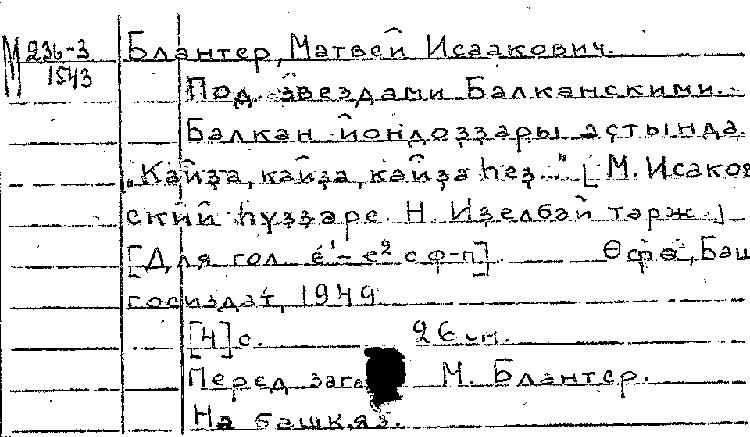 М 236-3 Блантер, Матвей Исаакович.
1543 Под звездами Балканскими.
Балкан йондоҙҙары астында
„Кайҙа, кайҙа, кайҙа һеҙ..." [М. Исаков
ский һүҙҙәре. Н. Иҙелбай тәрж.]
[Для гол. e¹-e² с ф-п] Өфө, Баш
госиздат, 1949
[4] с. 26 см.
Перед заг М. Блантер.
На башк. яз.